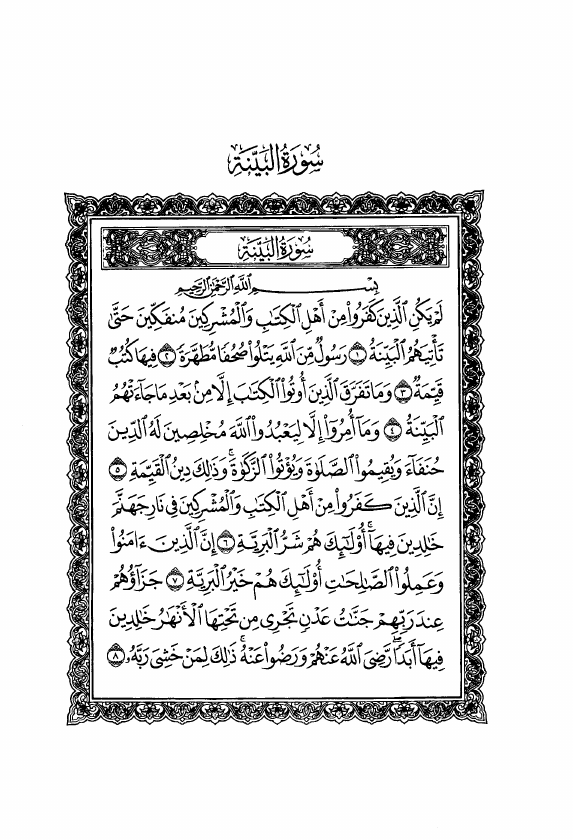 سُورَةُ البَيِّنَةِ
سُورَةُ البَيِّنَةِ
بِسْمِ اللَّهِ الرَّحْمَٰنِ الرَّحِيمِ
لَمْ يَكُنِ ٱلَّذِينَ كَفَرُوا۟ مِنْ أَهْلِ ٱلْكِتَٰبِ وَٱلْمُشْرِكِينَ مُنفَكِّينَ حَتَّىٰ
تَأْتِيَهُمُ ٱلْبَيِّنَةُ ١ رَسُولٌ مِّنَ ٱللَّهِ يَتْلُوا۟ صُحُفًا مُّطَهَّرَةً ٢ فِيهَا كُتُبٌ
قَيِّمَةٌ ٣ وَمَا تَفَرَّقَ ٱلَّذِينَ أُوتُوا۟ ٱلْكِتَٰبَ إِلَّا مِنۢ بَعْدِ مَا جَآءَتْهُمُ
ٱلْبَيِّنَةُ ٤ وَمَآ أُمِرُوٓا۟ إِلَّا لِيَعْبُدُوا۟ ٱللَّهَ مُخْلِصِينَ لَهُ ٱلدِّينَ
حُنَفَآءَ وَيُقِيمُوا۟ ٱلصَّلَوٰةَ وَيُؤْتُوا۟ ٱلزَّكَوٰةَ ۚ وَذَٰلِكَ دِينُ ٱلْقَيِّمَةِ ٥
إِنَّ ٱلَّذِينَ كَفَرُوا۟ مِنْ أَهْلِ ٱلْكِتَٰبِ وَٱلْمُشْرِكِينَ فِى نَارِ جَهَنَّمَ
خَٰلِدِينَ فِيهَآ ۚ أُو۟لَٰٓئِكَ هُمْ شَرُّ ٱلْبَرِيَّةِ ٦ إِنَّ ٱلَّذِينَ ءَامَنُوا۟
وَعَمِلُوا۟ ٱلصَّٰلِحَٰتِ أُو۟لَٰٓئِكَ هُمْ خَيْرُ ٱلْبَرِيَّةِ ٧ جَزَآؤُهُمْ
عِندَ رَبِّهِمْ جَنَّٰتُ عَدْنٍ تَجْرِى مِن تَحْتِهَا ٱلْأَنْهَٰرُ خَٰلِدِينَ
فِيهَآ أَبَدًا ۖ رَّضِىَ ٱللَّهُ عَنْهُمْ وَرَضُوا۟ عَنْهُ ۚ ذَٰلِكَ لِمَنْ خَشِىَ رَبَّهُۥ ٨